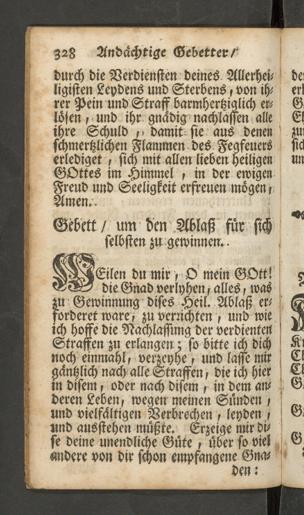 328 Andächtige Gebetter /
durch die Verdiensten deines Allerhei-
ligisten Leydens und Sterbens, von ih-
rer Pein und Straff barmhertziglich er-
lösen, und ihr gnädig nachlassen alle
ihre Schuld, damit sie aus denen
schmertzlichen Flammen des Fegfeuers
erlediget, sich mit allen lieben heiligen
GOttes im Himmel, in der ewigen
Freud und Seeligkeit erfreuen mögen,
Amen.
Gebett / um den Ablaß für sich
selbsten zu gewinnen.
WEilen du mir, O mein GOtt!
die Gnad verlyhen, alles, was
zu Gewinnung dises Heil. Ablaß er-
forderet ware, zu verrichten, und wie
ich hoffe die Nachlassung der verdienten
Straffen zu erlangen; so bitte ich dich
noch einmahl, verzeyhe, und lasse mir
gäntzlich nach alle Straffen, die ich hier
in disem, oder nach disem, in dem an-
deren Leben, wegen meinen Sünden,
und vielfältigen Verbrechen, leyden,
und ausstehen müßte. Erzeige mir di-
se deine unendliche Güte, über so viel
andere von dir schon empfangene Gna-
den: